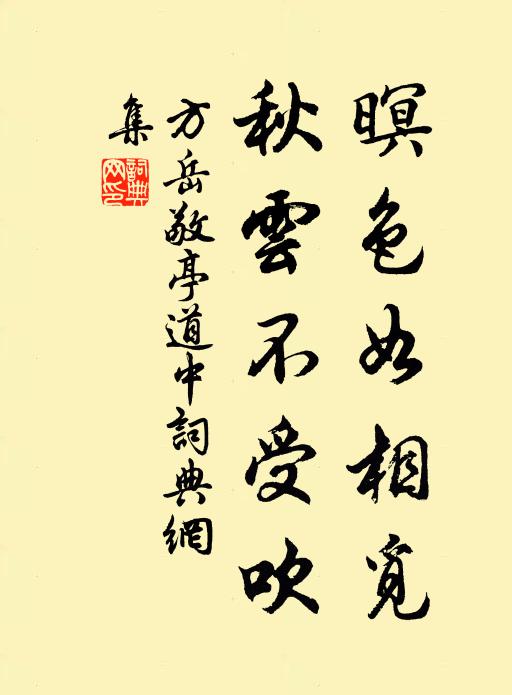 暝色如相覓
秋雲不受吹
方岳敬亭道中詞典網
集
詞典
网印